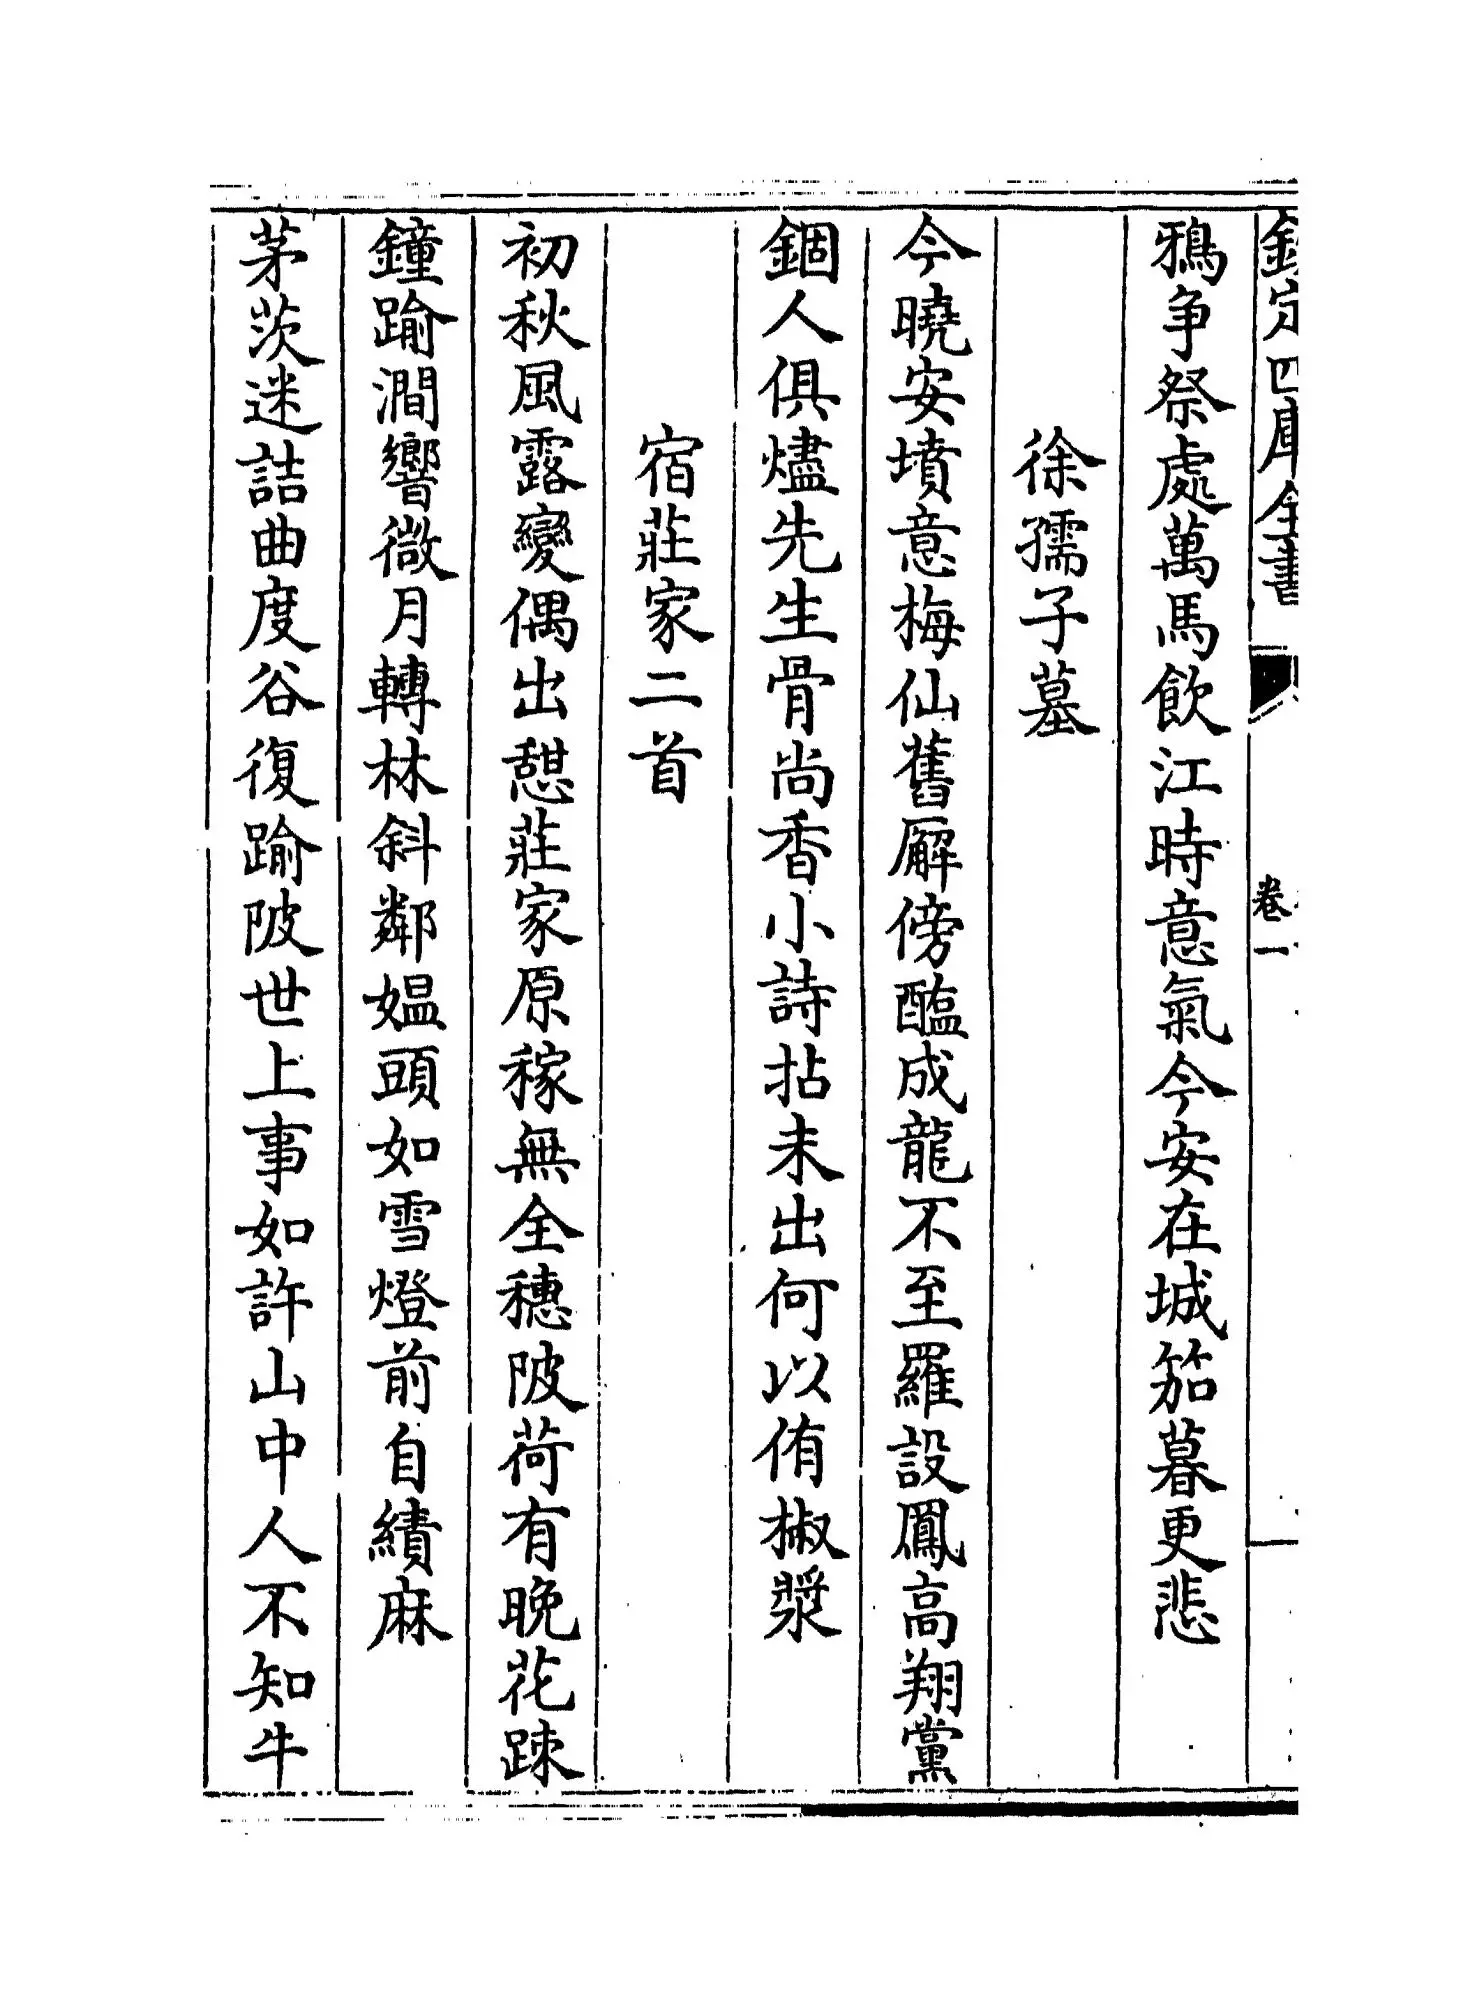 欽定四庫全書
卷一
鴉争祭處萬馬飲江時意氣今安在城笳暮更悲
徐孺子墓
今曉安墳意梅仙舊廨傍醢成龍不至羅設鳳高翔黨
錮人俱燼先生骨尚香小詩拈未出何以侑椒漿
宿莊家二首
初秋風露變偶出憇莊家原稼無全穗陂荷有晚花踈
鐘踰澗響微月轉林斜鄰媼頭如雪燈前自績麻
茅茨迷詰曲度谷復踰陂世上事如許山中人不知牛